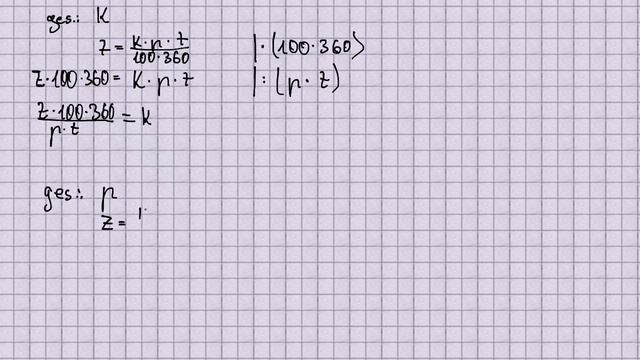 ges.: K
Z = K · p · t / 100 · 360 | · (100 · 360)
Z · 100 · 360 = K · p · z | : (p · z)
Z · 100 · 360 / p · t = K
ges.: p
Z =